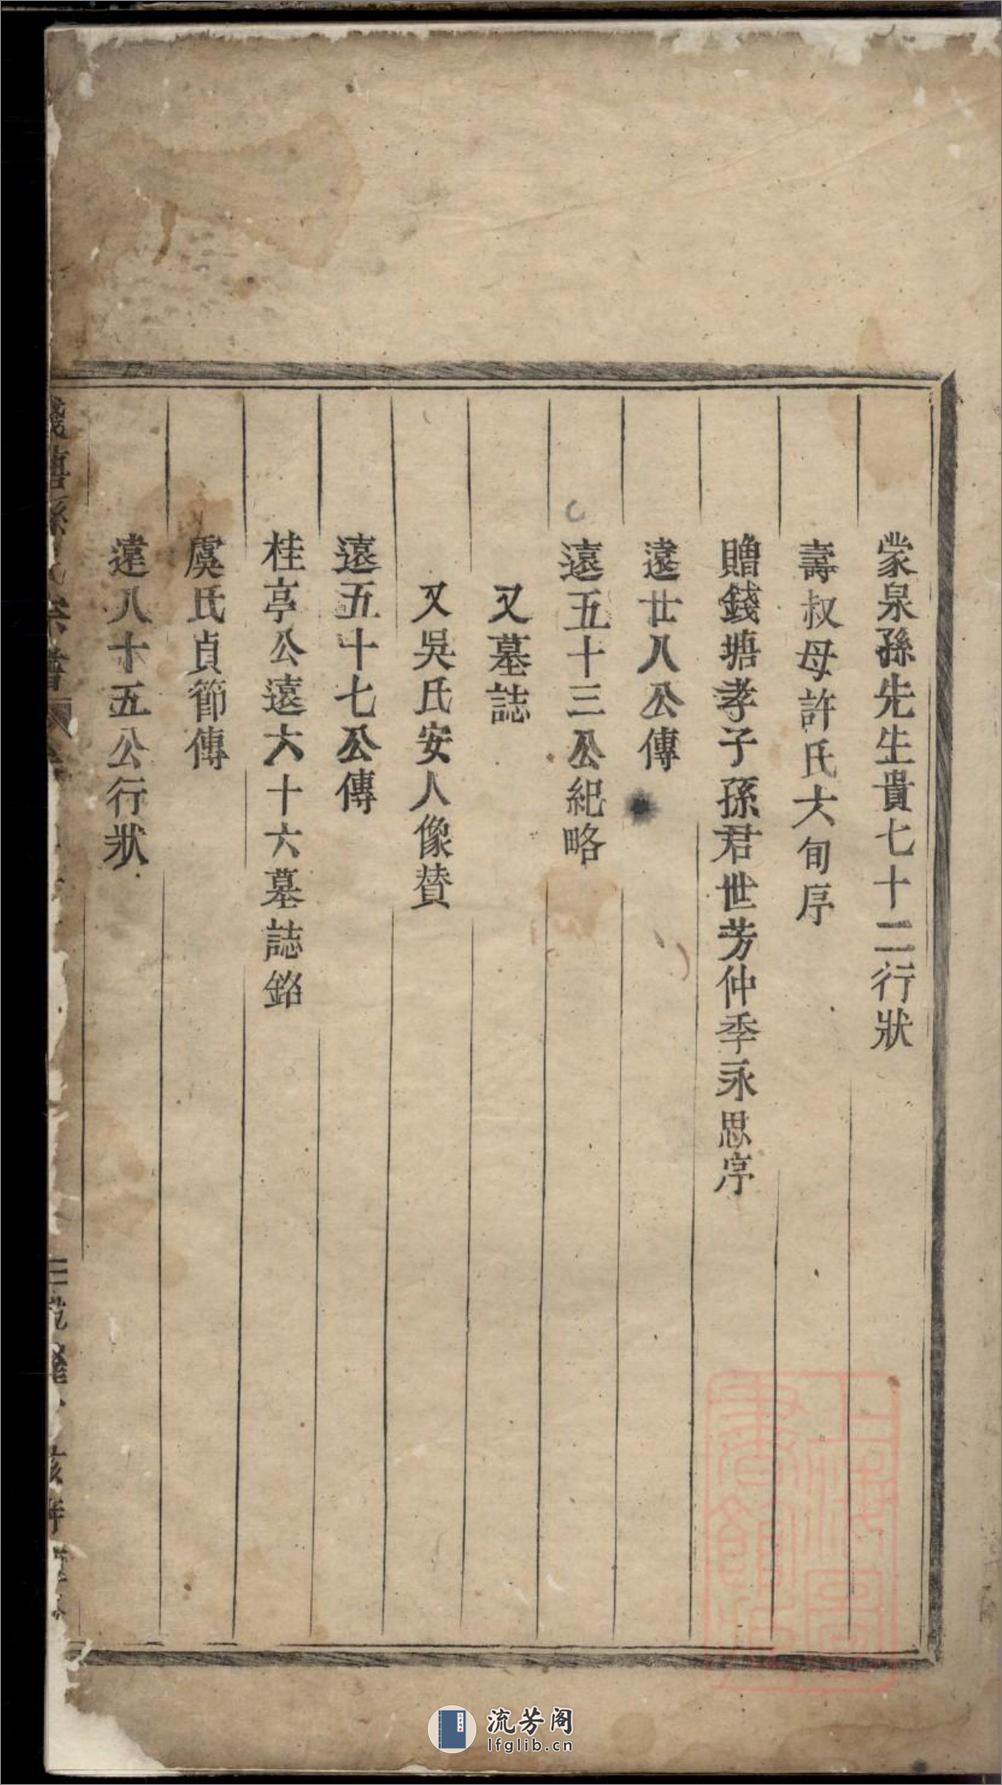 蒙泉孫先生貴七十二行狀
壽叔母許氏大旬序
贈錢塘孝子孫君世芳仲季永思序
遠廿八公傳
遠五十三公紀略
又墓誌
又吳氏安人像贊
遠五十七公傳
桂亭公遠六十六墓誌銘
虞氏貞節傳
遠八十五公行狀
上海圖書館藏
流芳阁
lfglib.cn